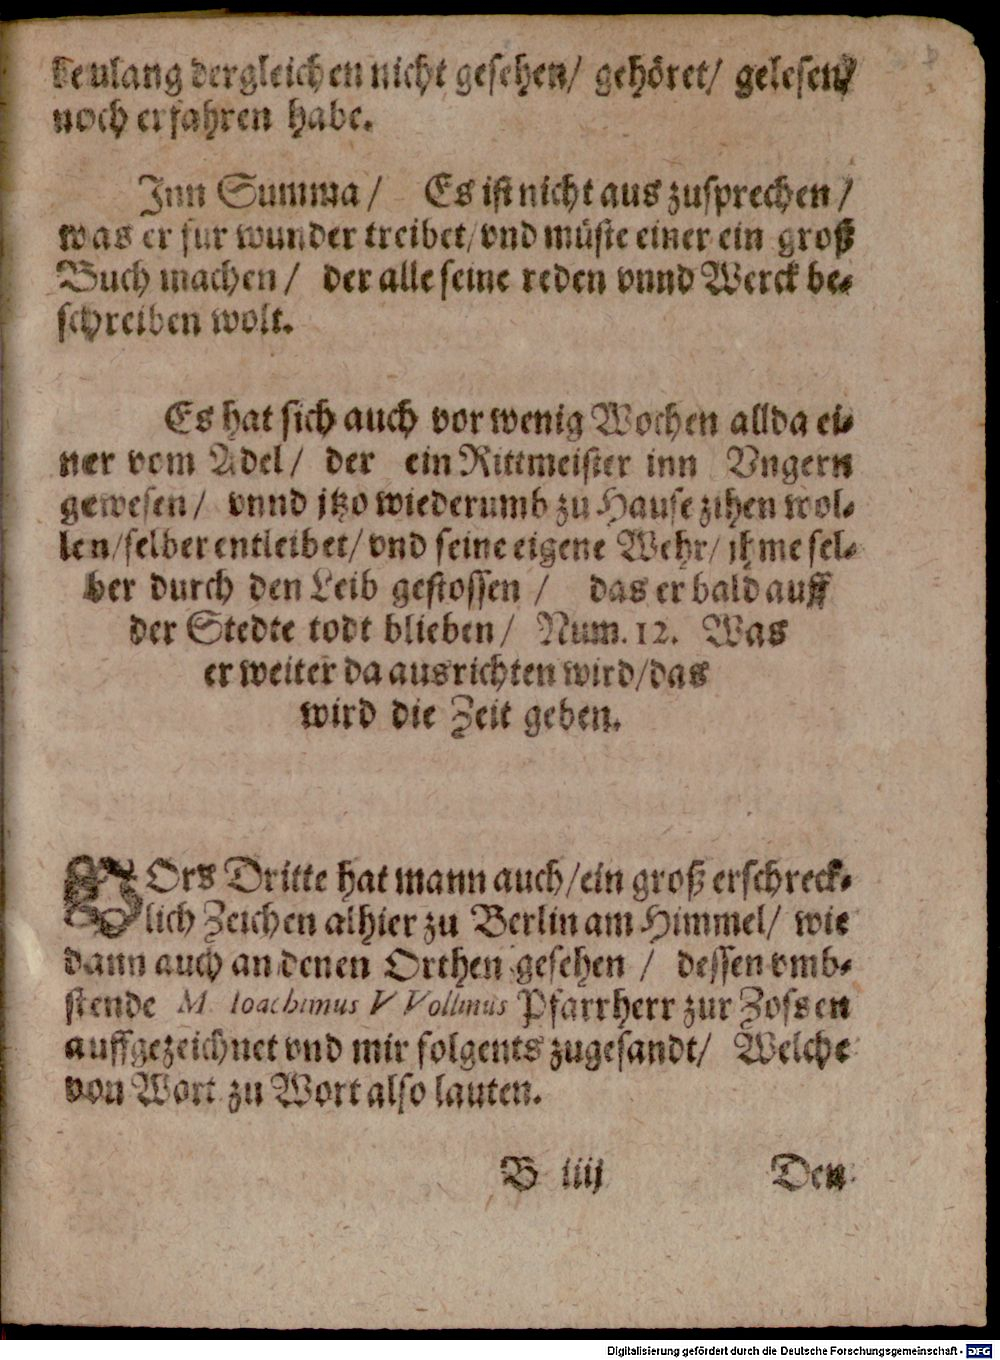 beulang dergleichen nicht gesehen/ gehöret/ gelesen/
noch erfahren habe.
Inn Summa / Es ist nicht aus zusprechen /
was er fur wunder treibet/ vnd müste einer ein groß
Buch machen / der alle seine reden vnnd Werck be-
schreiben wolt.
Es hat sich auch vor wenig Wochen allda ei-
ner vom Adel / der ein Rittmeister inn Vngern
gewesen / vnnd itzo wiederumb zu Hause zihen wol-
len/ selber entleibet/ vnd seine eigene Wehr/ ihme sel-
ber durch den Leib gestossen / das er bald auff
der Stedte todt blieben / Num. 12. Was
er weiter da ausrichten wird/ das
wird die Zeit geben.
VOrs Dritte hat mann auch/ ein groß erschreck-
lich Zeichen alhier zu Berlin am Himmel/ wie
dann auch an denen Orthen gesehen / dessen vmb-
stende M. Ioachimus VVollinus Pfarrherr zur Zossen
auffgezeichnet vnd mir folgents zugesandt/ Welche
von Wort zu Wort also lauten.
B iiij Den
Digitalisierung gefördert durch die Deutsche Forschungsgemeinschaft - DFG